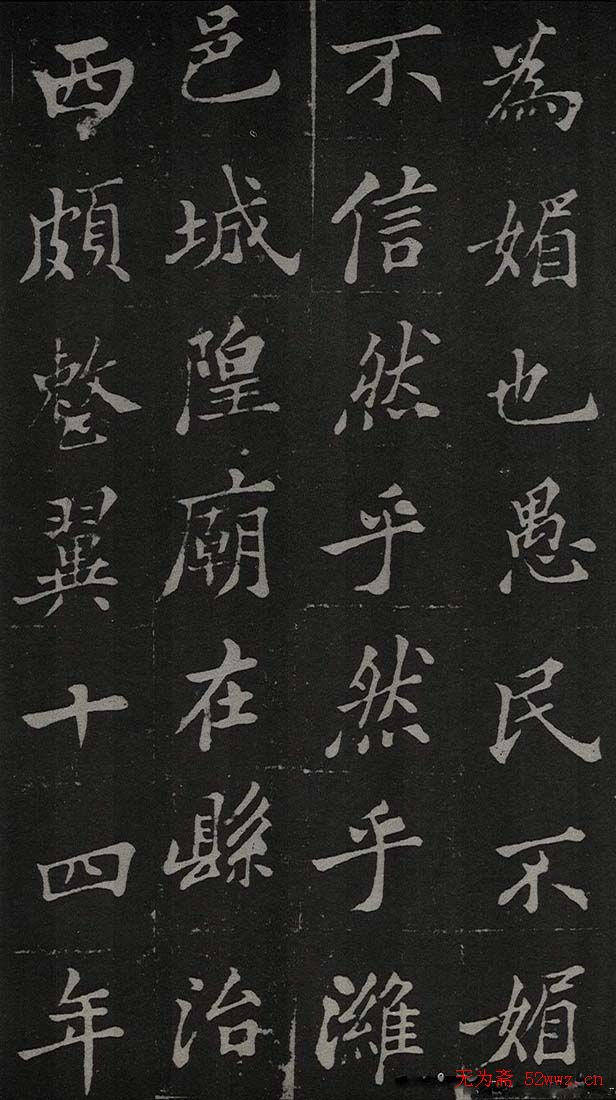 為媚也愚民不媚
不信然乎然乎濰
邑城隍廟在縣治
西頗整翼十四年
无为斋 52wwz.cn